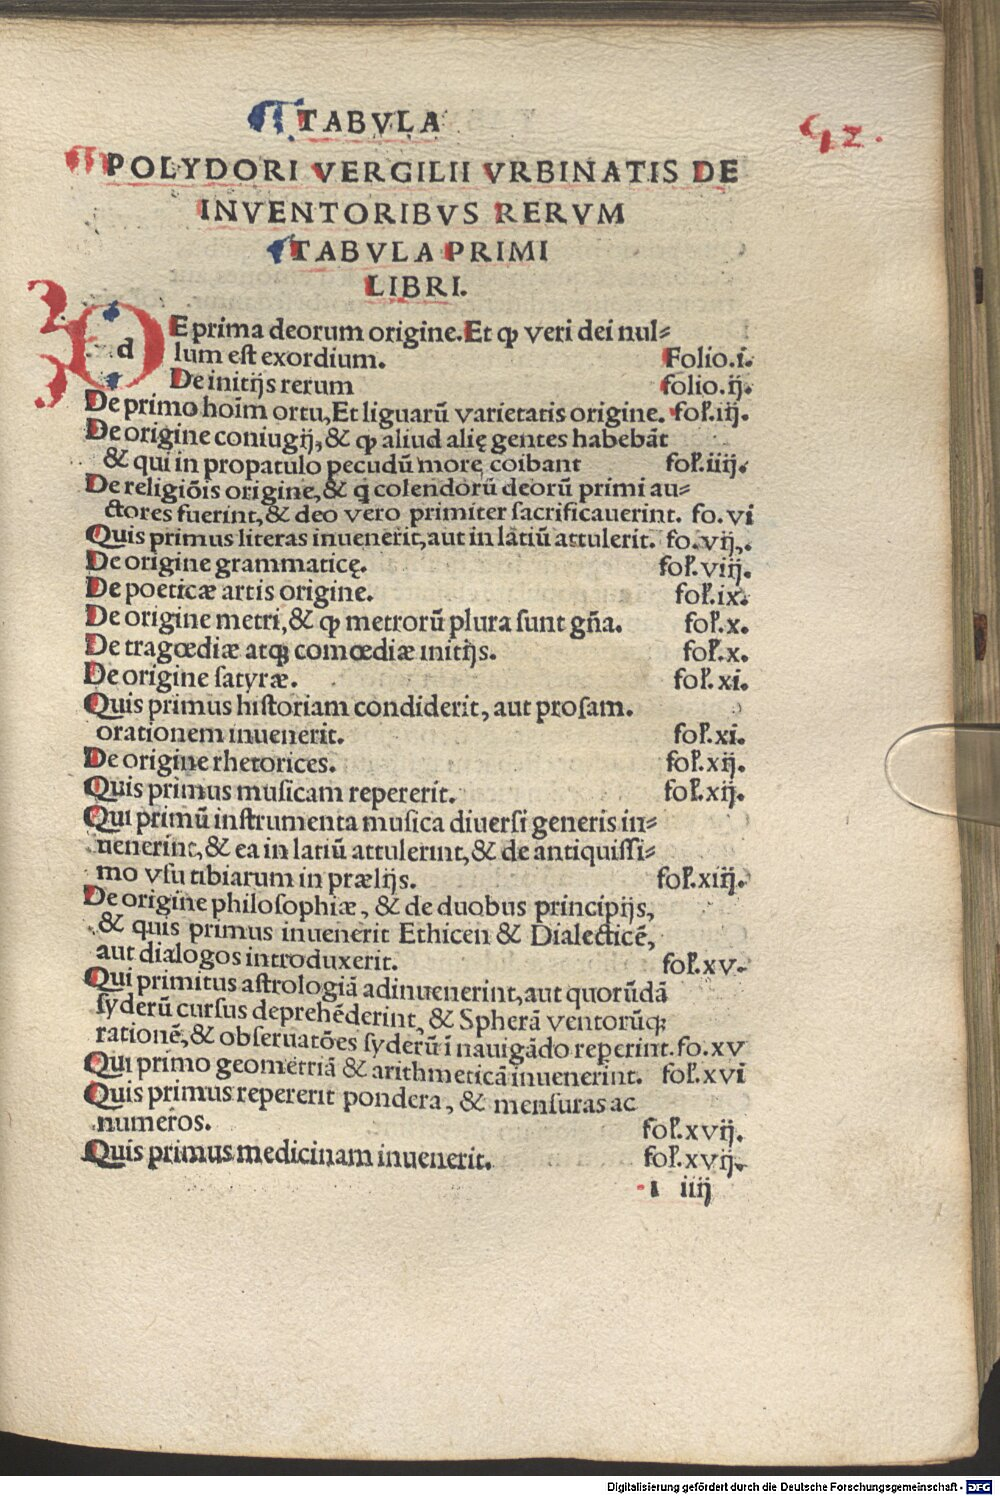 TABVLA
92.
POLYDORI VERGILII VRBINATIS DE
INVENTORIBVS RERVM
TABVLA PRIMI
LIBRI.
DE prima deorum origine. Et ꝙ veri dei nul⸗
d
lum est exordium. Folio.i.
De initijs rerum folio.ij.
De primo hoīm ortu, Et liguarū varietatis origine. foł.iij.
De origine coniugij, & ꝙ aliud alię gentes habebāt
& qui in propatulo pecudū more coibant foł.iiij.
De religiōis origine, & q̄ colendorū deorū primi au⸗
ctores fuerint, & deo vero primiter sacrificauerint. fo.vi
Quis primus literas inuenerit, aut in latiū attulerit. fo.vij.
De origine grammaticę. foł.viij.
De poeticæ artis origine. foł.ix.
De origine metri, & ꝙ metrorū plura sunt gña. foł.x.
De tragœdiæ atqꝫ comœdiæ initijs. foł.x.
De origine satyræ. foł.xi.
Quis primus historiam condiderit, aut prosam.
orationem inuenerit. foł.xi.
De origine rhetorices. foł.xij.
Quis primus musicam repererit. foł.xij.
Qui primū instrumenta musica diuersi generis in⸗
uenerint, & ea in latiū attulerint, & de antiquissi⸗
mo vsu tibiarum in prælijs. foł.xiij.
De origine philosophiæ, & de duobus principijs,
& quis primus inuenerit Ethicen & Dialecticē,
aut dialogos introduxerit. foł.xv.
Qui primitus astrologiā adinuenerint, aut quorūdā
syderū cursus deprehēderint, & Spherā ventorūqꝫ
rationē, & obseruatōes syderū ī nauigādo reperint. fo.xv
Qui primo geometriā & arithmeticā inuenerint. foł.xvi
Quis primus repererit pondera, & mensuras ac
numeros. foł.xvij.
Quis primus medicinam inuenerit. foł.xvij.
ı iiij
Digitalisierung gefördert durch die Deutsche Forschungsgemeinschaft - DFG